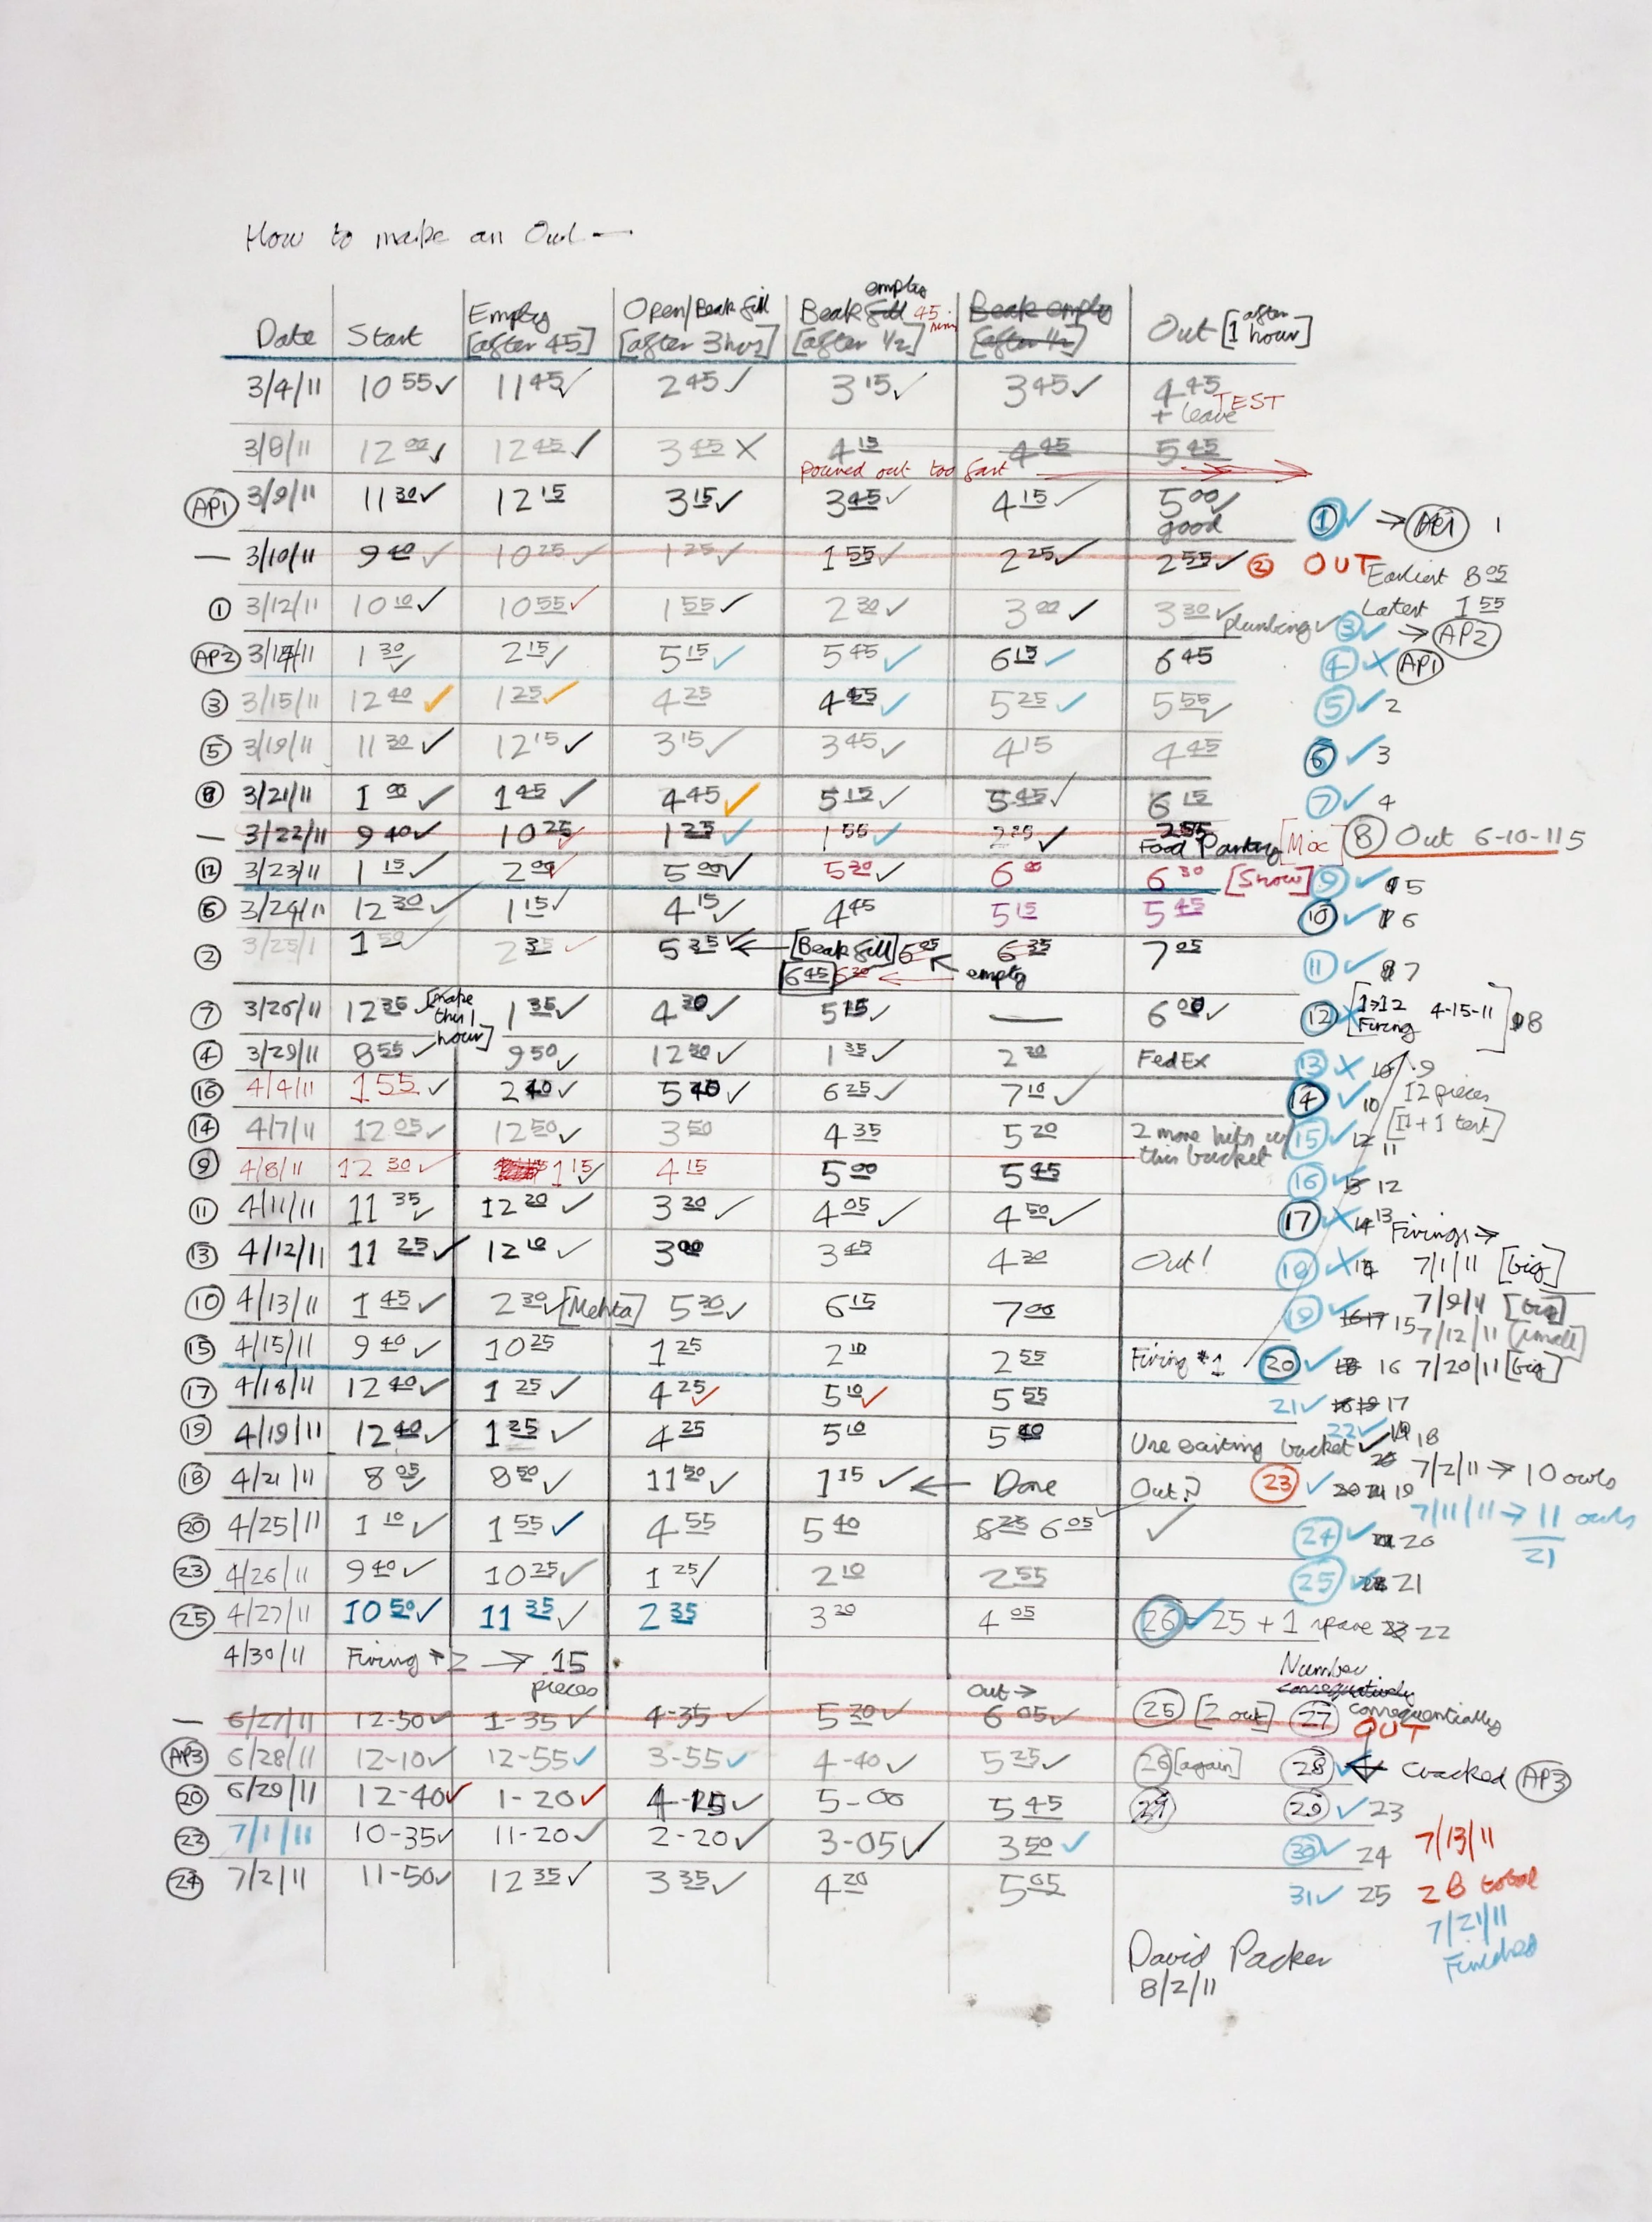 How to make an Owl —
Date Start Empty [after 45] Open/Beak fill [after 3hrs] Beak fill empty 45 mins [after 1/2] Beak empty [after 1/2] Out [1 after hour]
3/4/11 10 55 ✓ 11 45 ✓ 2 45 ✓ 3 15 ✓ 3 45 ✓ 4 45 + leave TEST
3/8/11 12 00 ✓ 12 45 ✓ 3 45 X 4 15 4 45 5 45
poured out too fast
AP1 3/9/11 11 30 ✓ 12 15 3 15 ✓ 3 45 ✓ 4 15 ✓ 5 00 ✓ good 1 ✓ → AP1 1
— 3/10/11 9 40 ✓ 10 25 ✓ 1 25 ✓ 1 55 ✓ 2 25 ✓ 2 55 ✓ 2 OUT
Earliest 8 05
Latest 1 55
1 3/12/11 10 10 ✓ 10 55 ✓ 1 55 ✓ 2 30 ✓ 3 00 ✓ 3 30 ✓ plumbing ✓ 3 ✓ → AP2
AP2 3/14/11 1 30 ✓ 2 15 ✓ 5 15 ✓ 5 45 ✓ 6 15 ✓ 6 45 4 X AP1
3 3/15/11 12 40 ✓ 1 25 ✓ 4 25 4 55 ✓ 5 25 ✓ 5 55 ✓ 5 ✓ 2
5 3/19/11 11 30 ✓ 12 15 ✓ 3 15 ✓ 3 45 ✓ 4 15 4 45 6 ✓ 3
8 3/21/11 1 00 ✓ 1 45 ✓ 4 45 ✓ 5 15 ✓ 5 45 ✓ 6 15 7 ✓ 4
— 3/22/11 9 40 ✓ 10 25 ✓ 1 25 ✓ 1 55 ✓ 2 25 ✓ 2 55 Food Pantry [Mix] 8 Out 6-10-11 5
12 3/23/11 1 15 ✓ 2 00 ✓ 5 00 ✓ 5 30 ✓ 6 00 6 30 [Snow] 9 ✓ 5
6 3/24/11 12 30 ✓ 1 15 ✓ 4 15 ✓ 4 45 5 15 5 45 10 ✓ 6
2 3/25/1 1 50 ✓ 2 35 ✓ 5 35 ✓ ← [Beak fill] 6 05 6 35 7 05 11 ✓ 7
6 45 6 30 ← ← empty
7 3/26/11 12 35 ✓ [make this 1 hour] 1 35 ✓ 4 30 ✓ 5 15 ✓ — 6 00 ✓ 12 X [1→12 Firing 4-15-11] 8
4 3/29/11 8 55 ✓ 9 50 ✓ 12 50 ✓ 1 35 ✓ 2 20 FedEx 13 X 9
16 4/4/11 1 55 ✓ 2 40 ✓ 5 40 ✓ 6 25 ✓ 7 10 ✓ 14 ✓ 10
12 pieces
[11 + 1 test]
14 4/7/11 12 05 ✓ 12 50 ✓ 3 50 4 35 5 20 2 more hits w/ this bucket 15 ✓ 12 11
9 4/8/11 12 30 ✓ 1 15 ✓ 4 15 5 00 5 45 16 ✓ 12
11 4/11/11 11 35 ✓ 12 20 ✓ 3 20 ✓ 4 05 ✓ 4 50 ✓ 17 X 14 13 Firings →
13 4/12/11 11 25 ✓ 12 10 ✓ 3 00 3 45 4 30 Out! 18 X 7/1/11 [big]
10 4/13/11 1 45 ✓ 2 30 ✓ [Mehta] 5 30 ✓ 6 15 7 00 19 ✓ 16 17 15 7/9/11 [big]
7/12/11 [small]
15 4/15/11 9 40 ✓ 10 25 1 25 2 10 2 55 Firing #1 20 ✓ 18 16 7/20/11 [big]
17 4/18/11 12 40 ✓ 1 25 ✓ 4 25 ✓ 5 10 ✓ 5 55 21 ✓ 18 19 17
19 4/19/11 12 40 ✓ 1 25 ✓ 4 25 5 10 5 40 Use existing bucket ✓ 22 ✓ 19 18
18 4/21/11 8 05 ✓ 8 50 ✓ 11 50 ✓ 1 15 ✓ ← Done Out? 23 ✓ 20 21 19 7/2/11 → 10 owls
20 4/25/11 1 10 ✓ 1 55 ✓ 4 55 5 40 6 25 6 05 ✓ 24 ✓ 20 7/11/11 → 11 owls
21
23 4/26/11 9 40 ✓ 10 25 ✓ 1 25 ✓ 2 10 2 55 25 ✓ 21
25 4/27/11 10 50 ✓ 11 35 ✓ 2 35 3 20 4 05 26 ✓ 25 + 1 spare 23 22
4/30/11 Firing #2 → 15 pieces
Number consequtively consequentially
— 6/27/11 12-50 ✓ 1-35 ✓ 4-35 ✓ 5 20 ✓ out → 6 05 ✓ 25 [2 out] 27 OUT
AP3 6/28/11 12-10 ✓ 12-55 ✓ 3-55 ✓ 4-40 ✓ 5 25 ✓ 26 [again] 28 ← Cracked AP3
20 6/29/11 12-40 ✓ 1-20 ✓ 4-15 ✓ 5-00 5 45 29 ✓ 23
22 7/1/11 10-35 ✓ 11-20 ✓ 2-20 ✓ 3-05 ✓ 3 50 ✓ 30 ✓ 24 7/13/11
24 7/2/11 11-50 ✓ 12 35 ✓ 3 35 ✓ 4 20 5 05 31 ✓ 25 28 total
7/21/11
Finished
David Packer
8/2/11